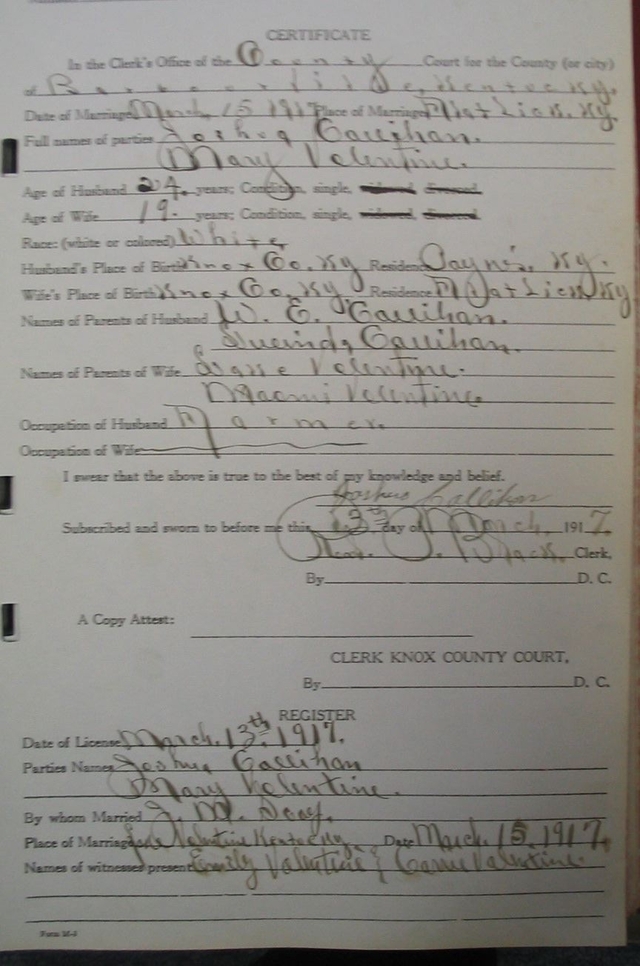 CERTIFICATE
In the Clerk's Office of the County Court for the County (or city)
of Barbourville, Kentucky.
Date of Marriage March, 15 1917 Place of Marriage Flat Lick. Ky.
Full names of parties Joshua Callihan.
Mary Valentine.
Age of Husband 24. years; Condition, single, widowed, divorced
Age of Wife 19. years; Condition, single, widowed, divorced
Race: (white or colored) White
Husband's Place of Birth Knox Co. Ky Residence Ky.
Wife's Place of Birth Knox Co. Ky Residence Flat Lick Ky
Names of Parents of Husband W. E. Callihan.
Callihan.
Names of Parents of Wife Valentine.
Naomi Valentine.
Occupation of Husband Farmer.
Occupation of Wife
I swear that the above is true to the best of my knowledge and belief.
Joshua Callihan
Subscribed and sworn to before me this 13th day of March, 1917.
Clerk,
By D. C.
A Copy Attest:
CLERK KNOX COUNTY COURT,
By D. C.
REGISTER
Date of License March. 13th. 1917.
Parties Names Joshua Callihan
Mary Valentine.
By whom Married J. M.
Place of Marriage Valentine Kentucky. Date March 15, 1917.
Names of witnesses present Emily Valentine & Valentine.